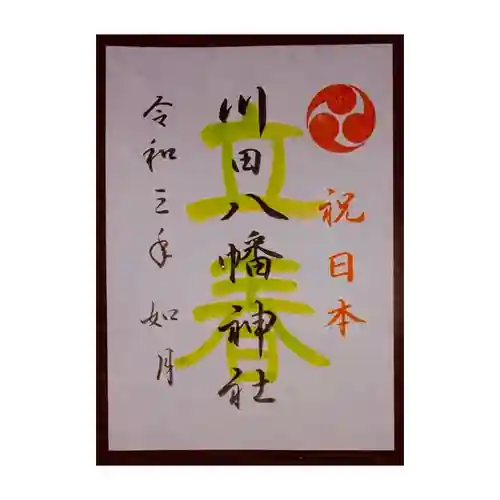 祝日本
川田八幡神社
立春
令和三年 如月